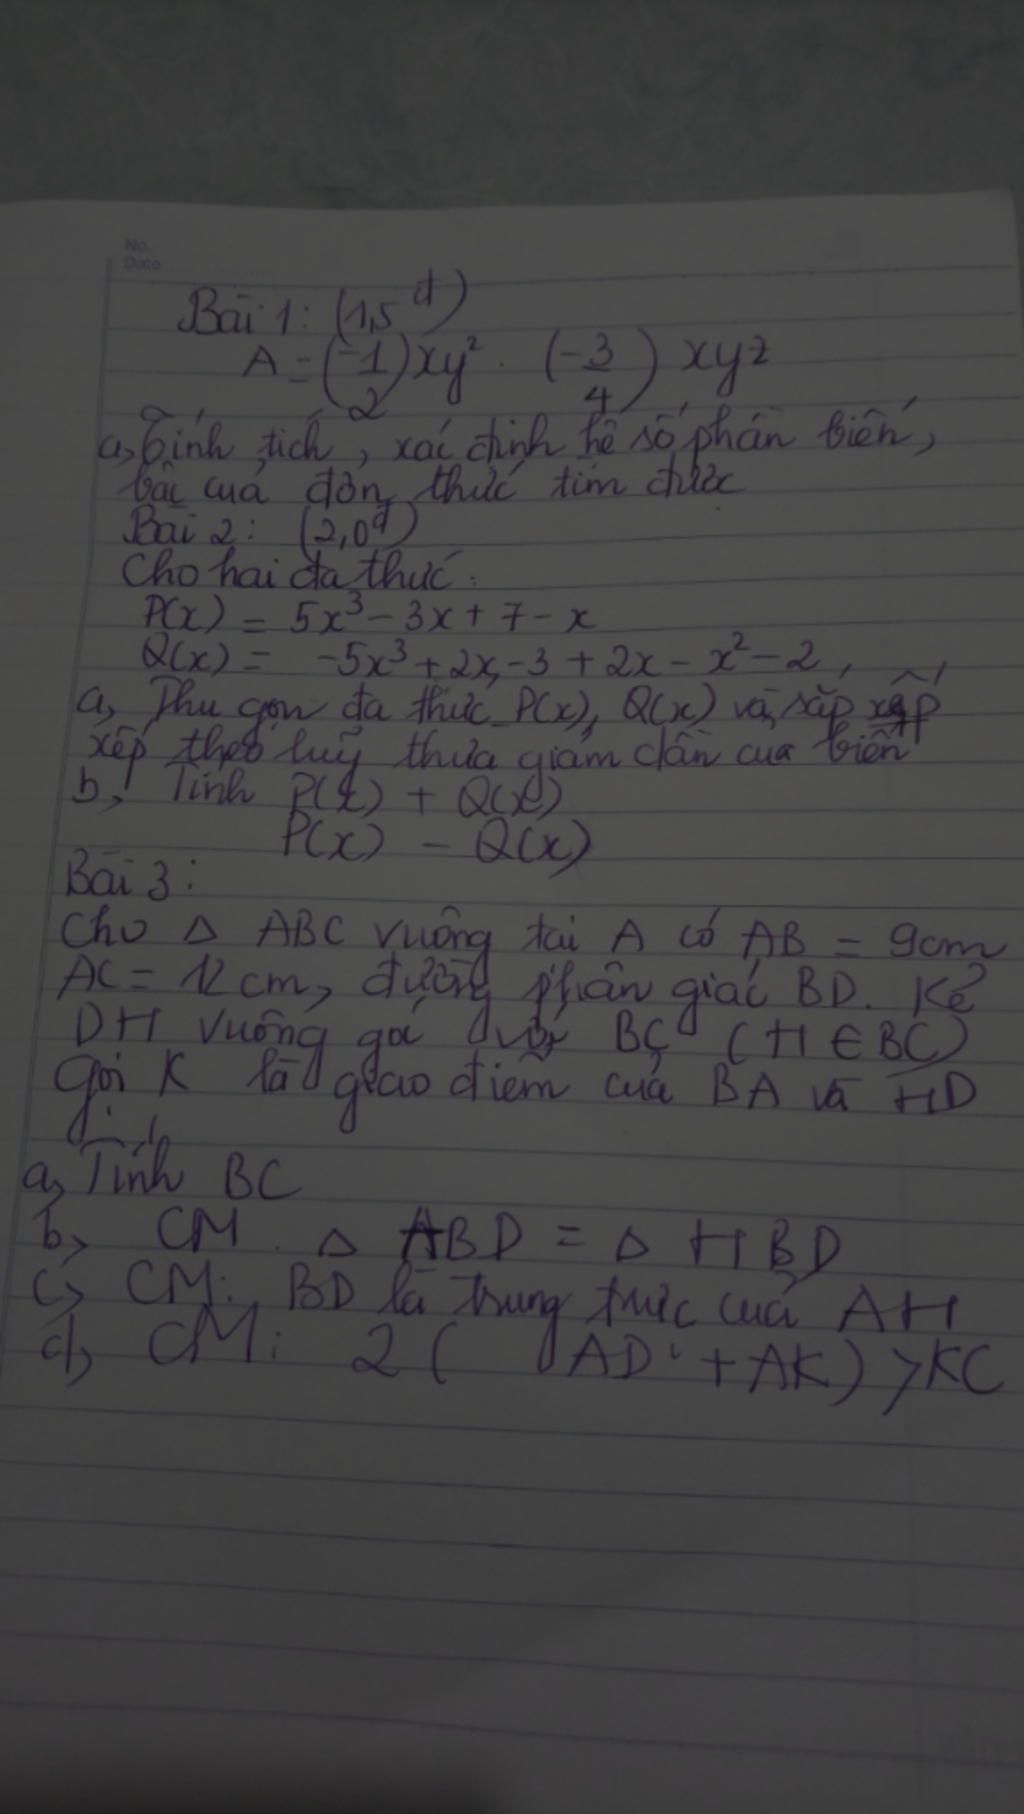 No.
Date
Bài 1: (1,5 đ)
A = (-1/2) xy² . (-3/4) xyz
a, Tính tích, xác định hệ số phần biến,
bậc của đơn thức tìm được
Bài 2: (2,0đ)
Cho hai đa thức:
P(x) = 5x³ - 3x + 7 - x
Q(x) = -5x³ + 2x - 3 + 2x - x² - 2
a, Thu gọn đa thức P(x), Q(x) và sắp
xếp theo luỹ thừa giảm dần của biến
b, Tính P(x) + Q(x)
P(x) - Q(x)
Bài 3:
Cho Δ ABC vuông tại A có AB = 9cm
AC = 12 cm, đường phân giác BD. Kẻ
DH vuông góc với BC (H ∈ BC)
Gọi K là giao điểm của BA và HD
a, Tính BC
b, CM Δ ABD = Δ HBD
c, CM: BD là trung trực của AH
d, CM: 2 ( AD + AK) > KC